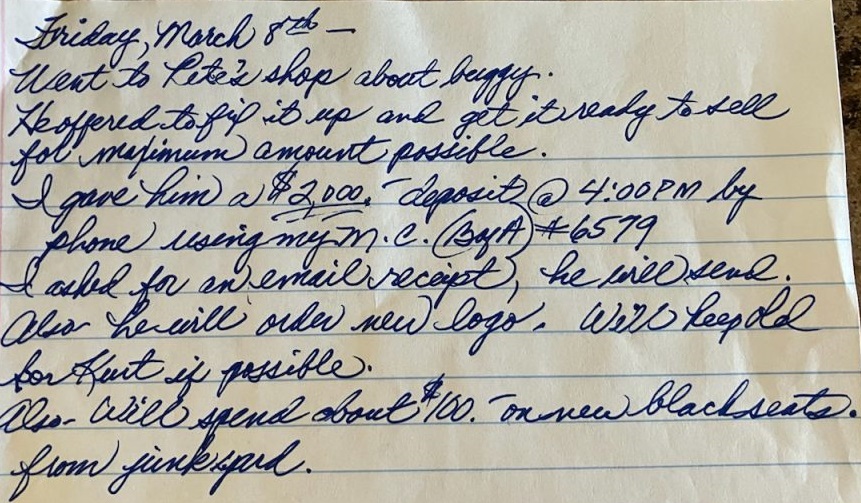 Friday, March 8th —
Went to Pete's shop about buggy.
He offered to fix it up and get it ready to sell
for maximum amount possible.
I gave him a $2,000.- deposit @ 4:00 PM by
phone using my M.C. (BofA) #6579
I asked for an email receipt, he will send.
Also- he will order new logo. Will keep old
for Kurt if possible.
Also- Will spend about $100.- on new black seats.
from junkyard.